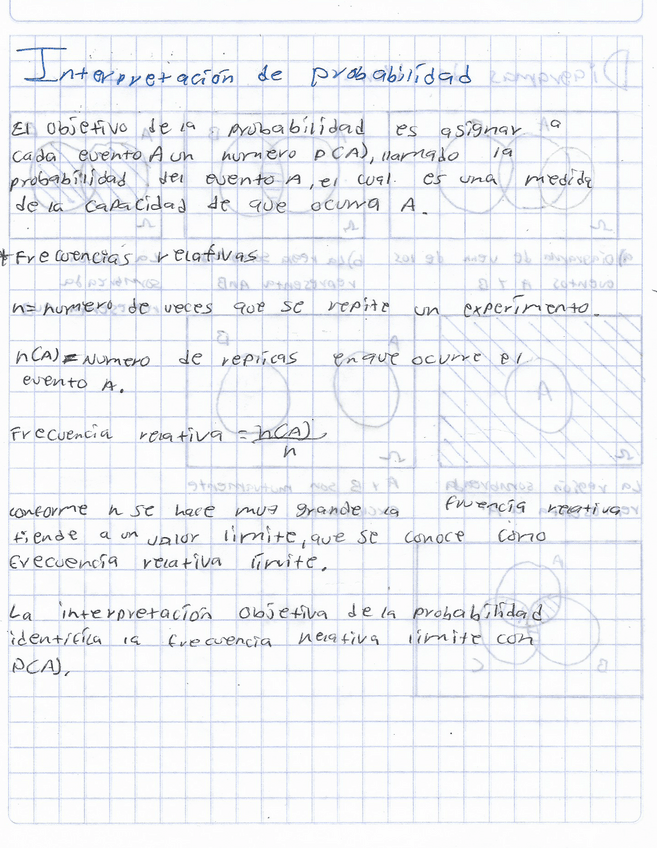 Interpretación de probabilidad
El objetivo de la probabilidad es asignar a
cada evento A un numero P(A), llamado la
probabilidad del evento A, el cual es una medida
de la capacidad de que ocurra A.
* Frecuencias relativas
n= numero de veces que se repite un experimento.
n(A) = Numero de replicas en que ocurre el
evento A.
Frecuencia relativa = n(A)
n
conforme n se hace muy grande la frecuencia relativa
tiende a un valor límite, que se conoce como
frecuencia relativa límite.
La interpretación objetiva de la probabilidad
identifica la frecuencia relativa límite con
P(A).